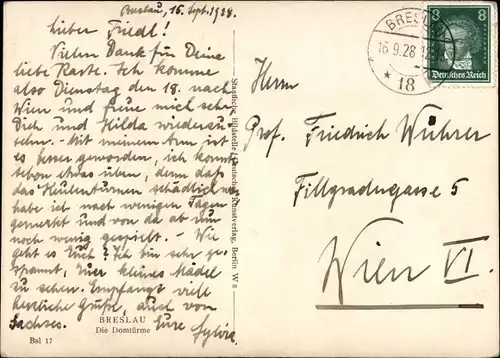 Breslau, 16. Sept. 1928.
Lieber Friedl!
Vielen Dank für Deine
liebe Karte. Ich komme
also Dienstag den 18. nach
Wien und freue mich sehr
Dich und Hilda wiederzu-
sehn. - Mit meinem Arm ist
es besser geworden, ich konnte
schon etwas üben, denn daß
das Keulenturnen schädlich war
habe ich nach wenigen Tagen
gemerkt und von da ab nur
noch wenig gespielt. - Wie
geht es Euch? Ich bin sehr ge-
spannt, Euer kleines Mädel
zu sehen. Empfangt viele
herzliche Grüße, auch von
Sachses. Eure Sylvia
BRESLAU
Die Domtürme
Bsl 17
Staatliche Bildstelle / Deutscher Kunstverlag, Berlin W 8
BRESLAU
16.9.28
* 18
8 8
Deutsches Reich
Herrn
Prof. Friedrich Wührer
Fillgradergasse 5
Wien VI.